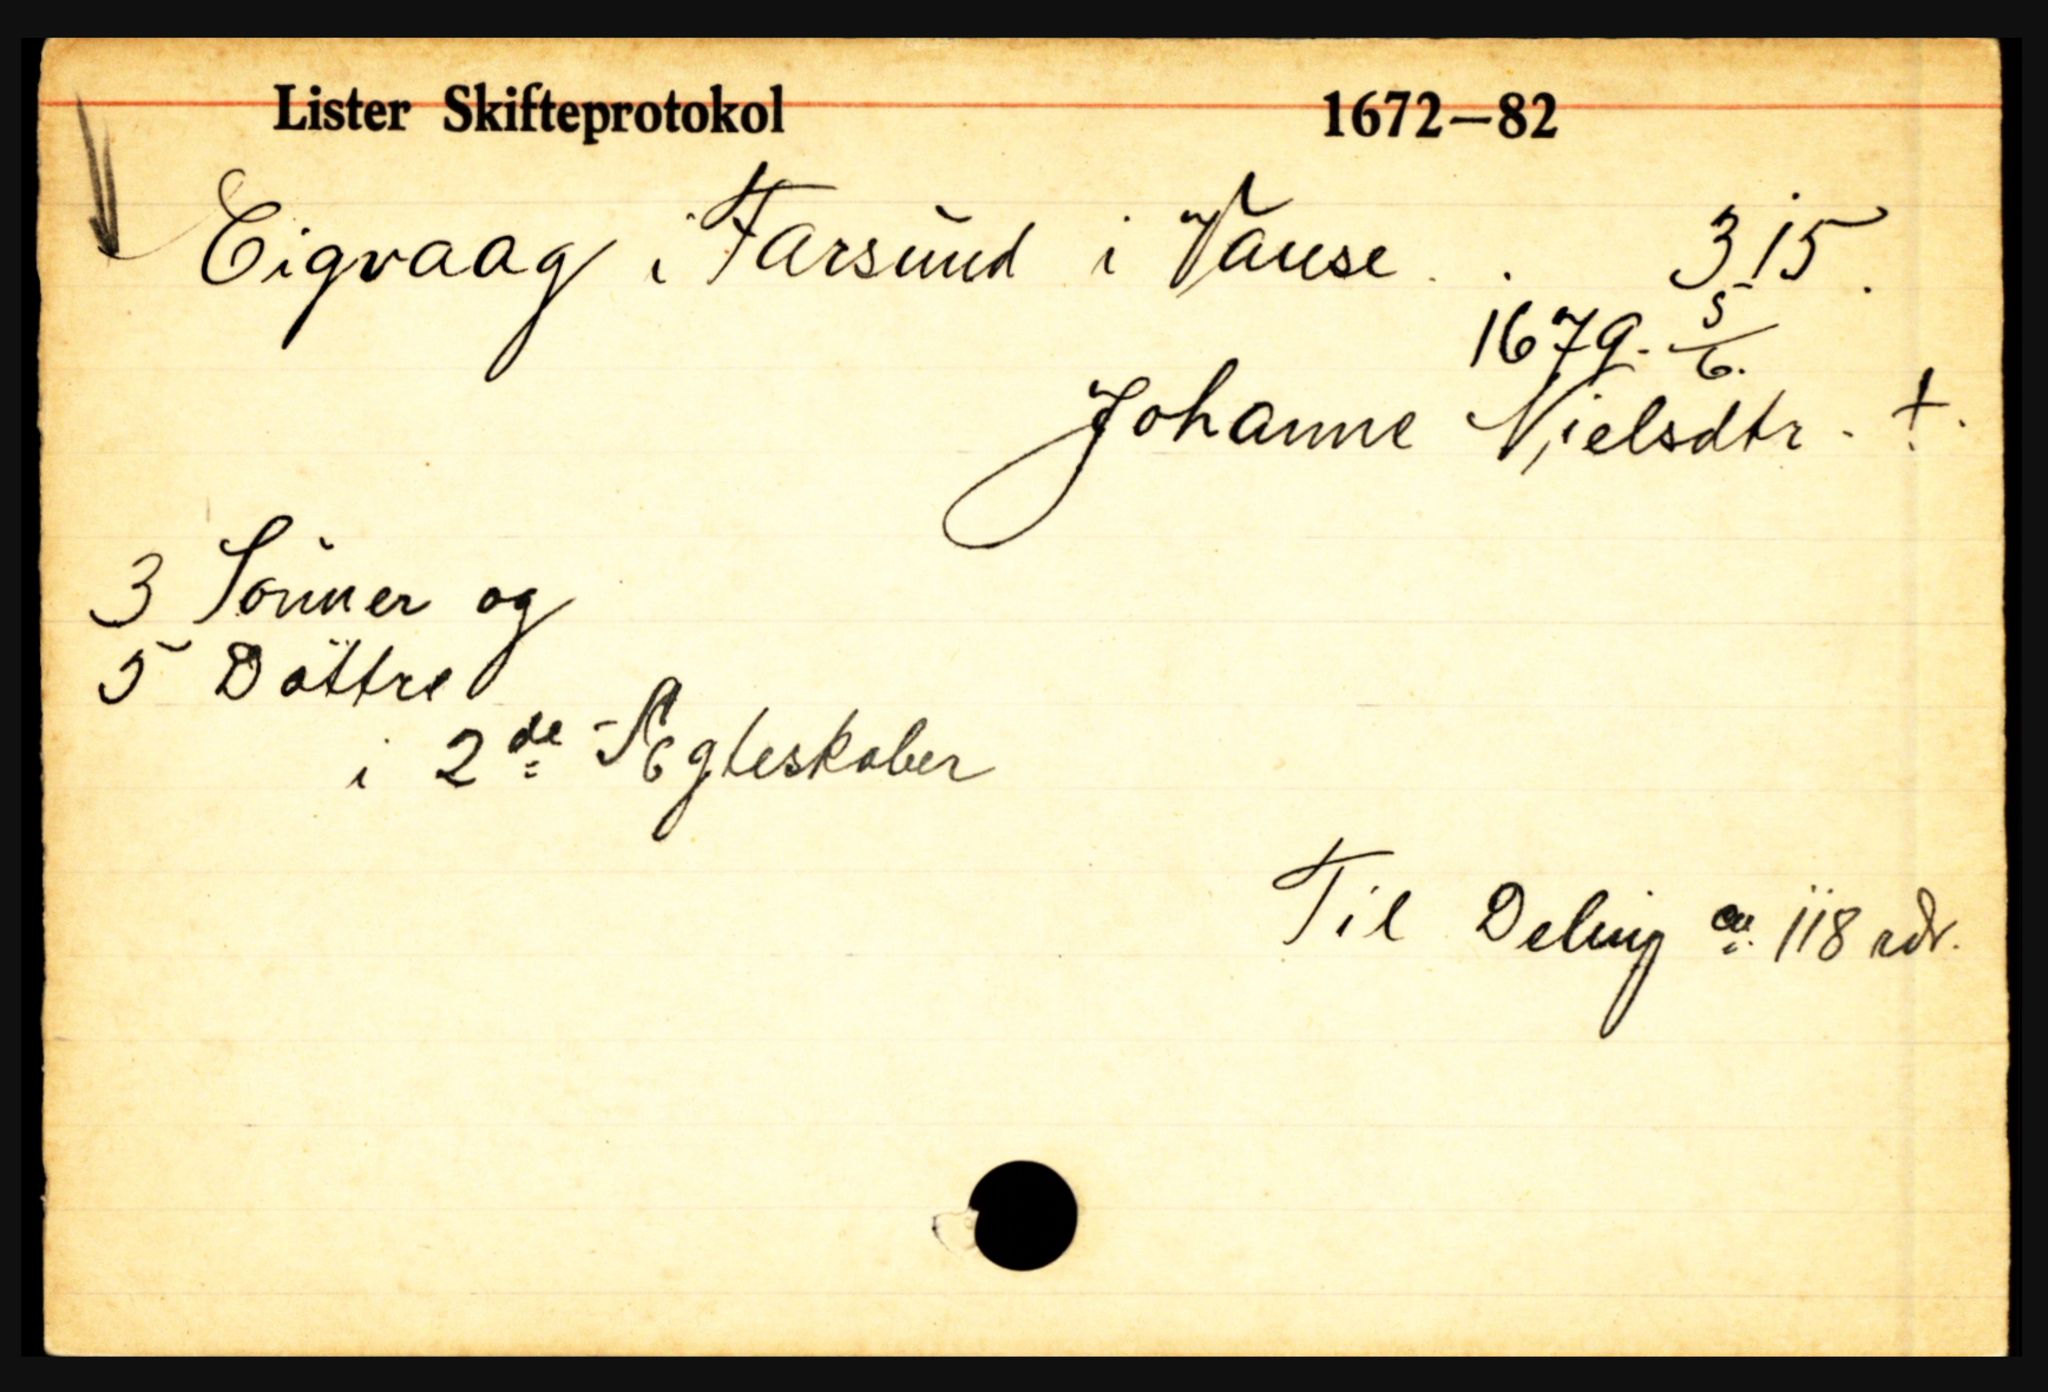 Lister Skifteprotokol 1672—82
Eigvaag i Farsund i Vanse . . 315.
1679. 5/6.
Johanne Nielsdtr. †.
3 Sönner og
5 Döttre
i 2de Ægteskaber
Til Deling ca. 118 rdr.